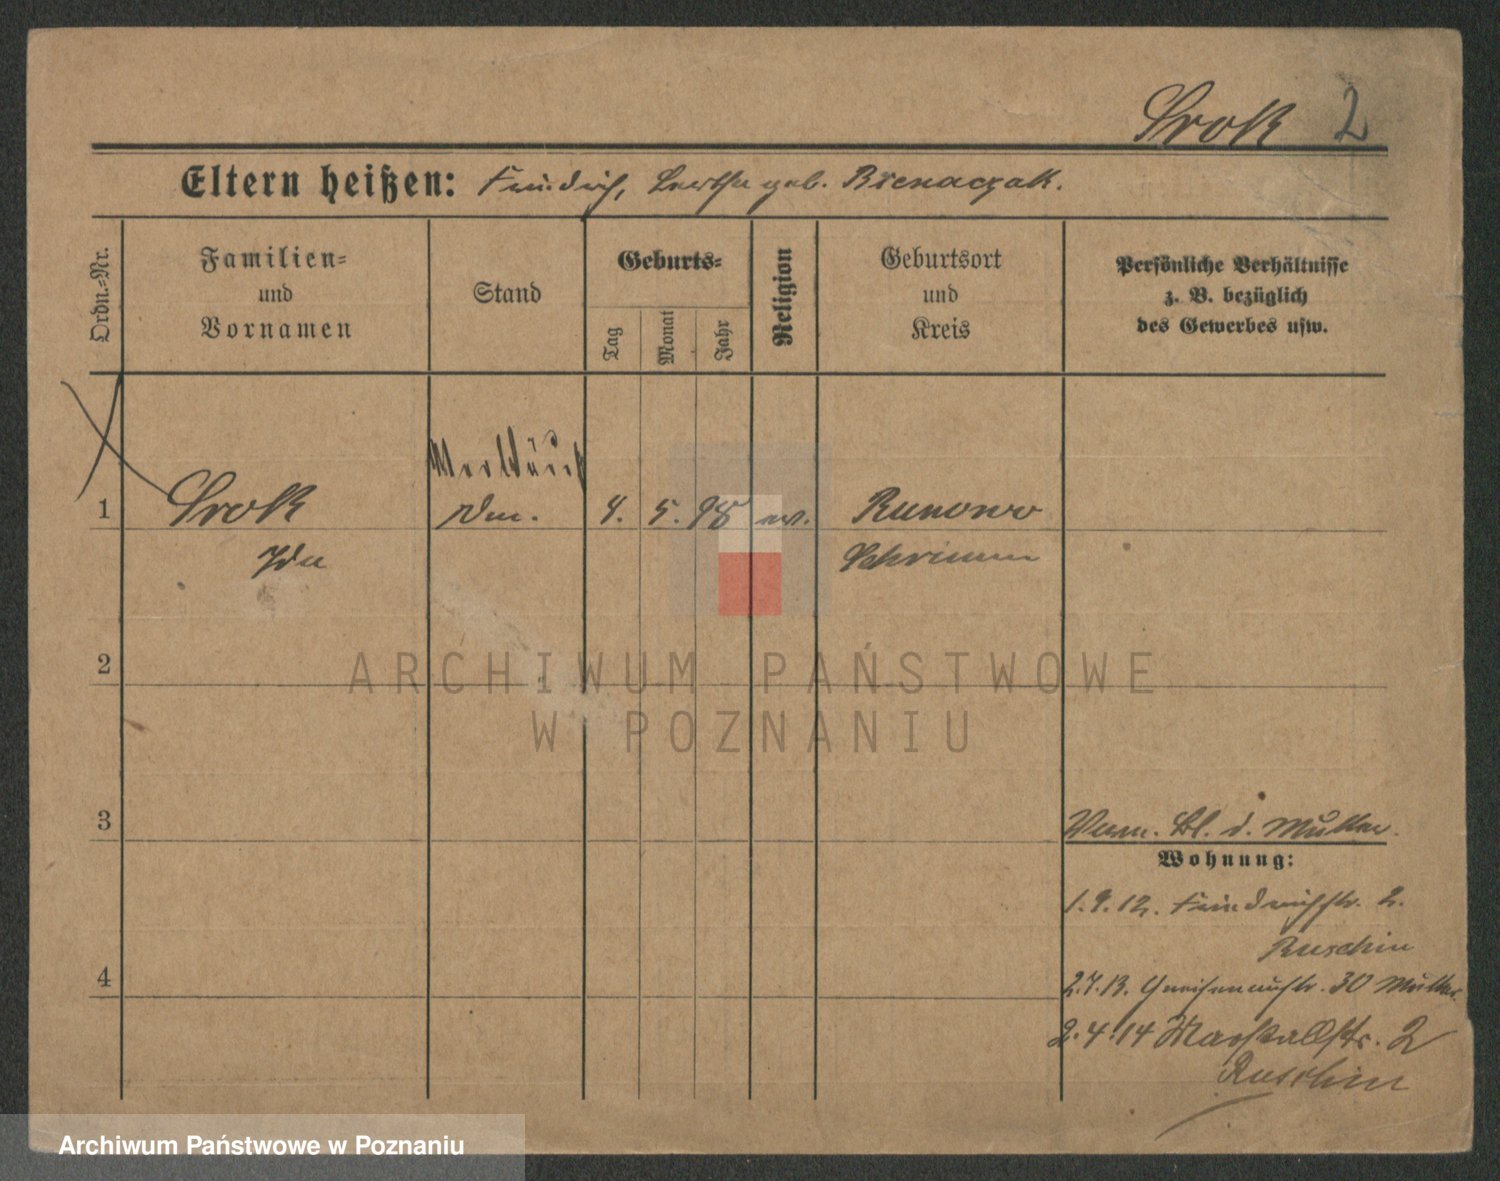 Srok 2
Eltern heißen: Friedrich, Bertha geb. Bienaczak.
Ordn.-Nr.
Familien-
und
Vornamen
Stand
Geburts-
Tag
Monat
Jahr
Religion
Geburtsort
und
Kreis
Persönliche Verhältnisse
z. B. bezüglich
des Gewerbes usw.
1 Srok 4. 5. 98 ev. Runowo
Ida Schrimm
ARCHIWUM PAŃSTWOWE
W POZNANIU
2
3
d. Mutter.
Wohnung:
1.9.12. Friedrichstr. 2.
Ruschin
4
2.7.13. Gneisenaustr. 30 Mutter.
2.4.14 Marstallstr. 2
Ruschin
Archiwum Państwowe w Poznaniu